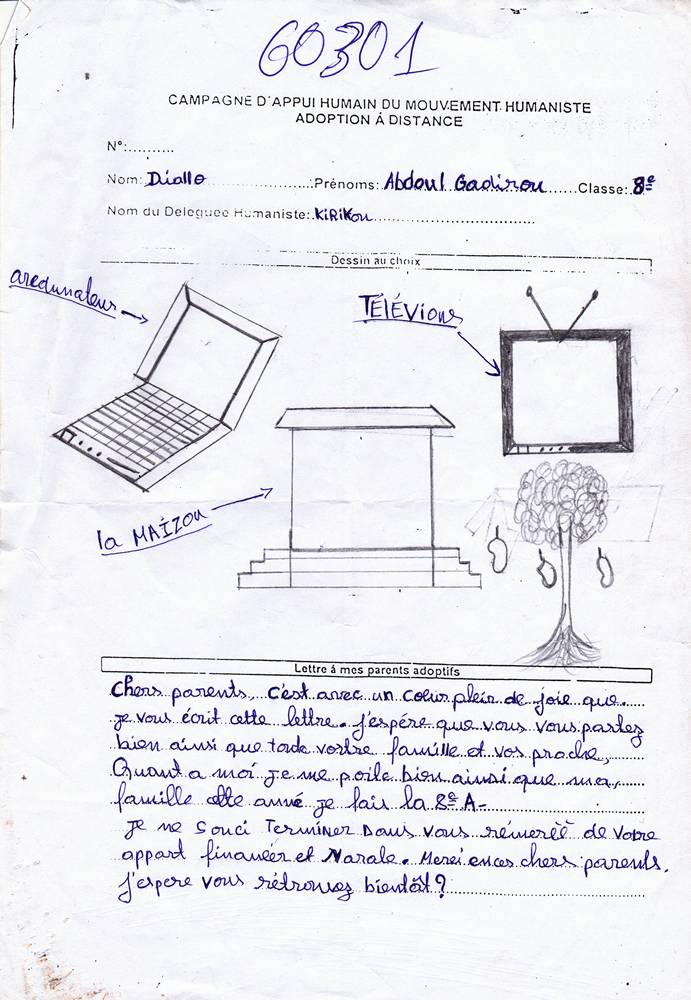 60301
CAMPAGNE D'APPUI HUMAIN DU MOUVEMENT HUMANISTE
ADOPTION Á DISTANCE
N°:..........
Nom: Diallo Prénoms: Abdoul Gadirou Classe: 8e
Nom du Deleguee Humaniste: KiRiKou
Dessin au choix
TÉLÉVions
la MAÏZOU
Lettre á mes parents adoptifs
Chers parents, c'est avec un coeur plein de joie que
je vous écrit cette lettre. j'espère que vous vous portez
bien ainsi que toute vostre famille et vos proche,
Quant a moi je me porte bien ainsi que ma,
famille cette anné je fais la 8e A-
Je ne Souci Terminer Dans Vous rémerèè de Votre
appart financér et Narale. Merci chers parents.
j'espere vous rétrouvez bientôt?